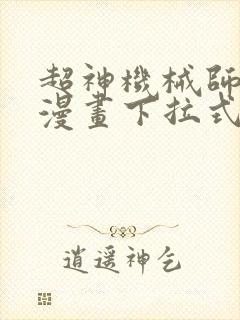 超神機械師
漫畫下拉式
逍遥神乞